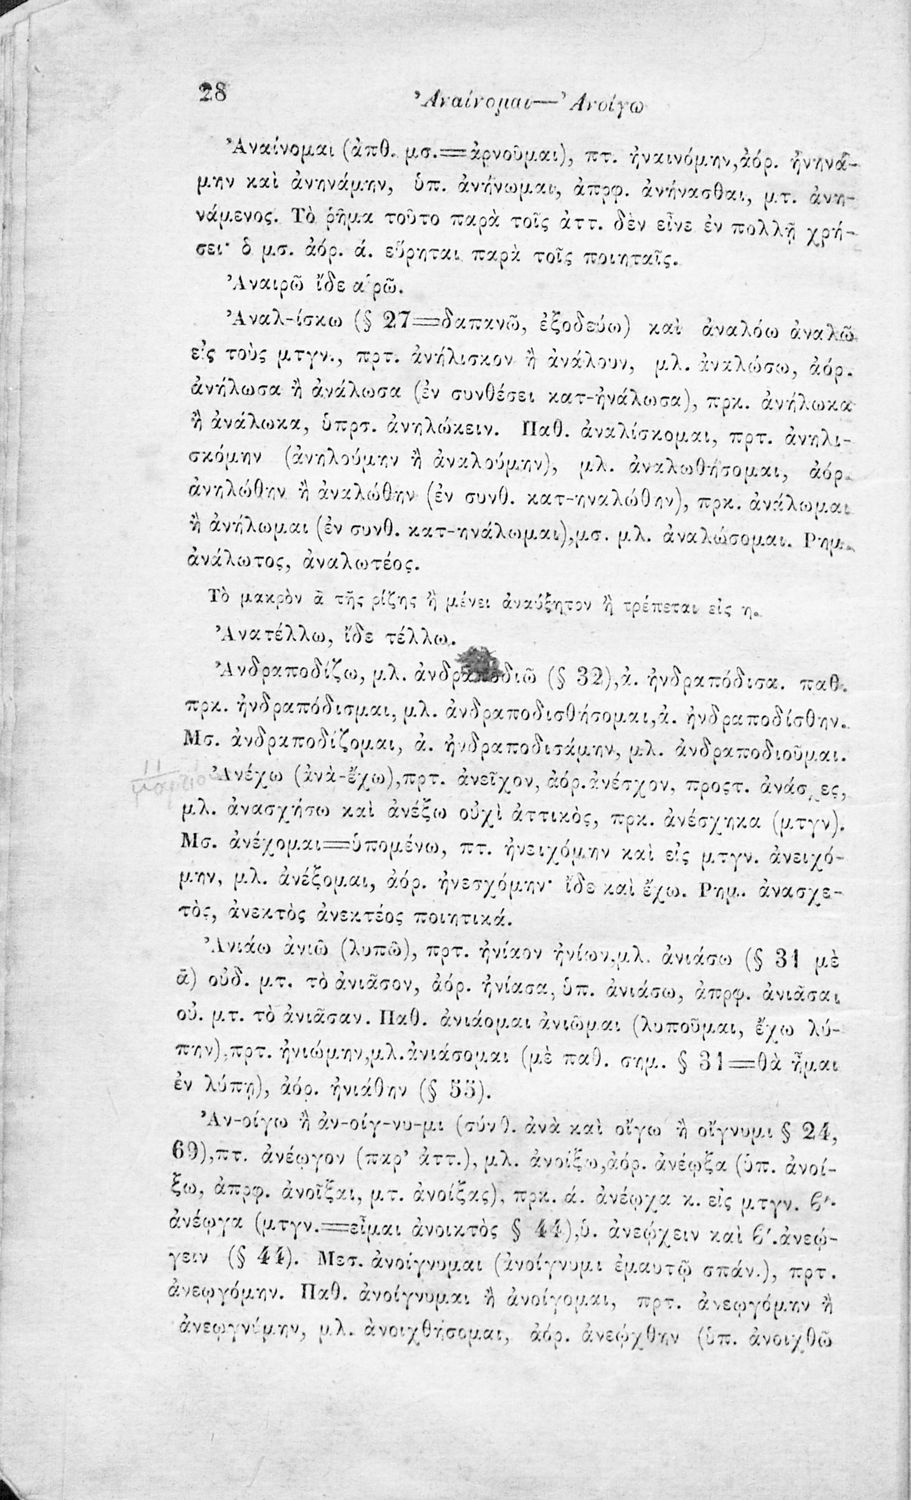 28
Ἀναίνομαι—Ἀνοίγω
Ἀναίνομαι (ἀπθ. μσ.=ἀρνοῦμαι), πτ. ἠναινόμην,ἀόρ. ἠνηνά-
μην καὶ ἀνηνάμην, ὑπ. ἀνήνωμαι, ἀπρφ. ἀνήνασθαι, μτ. ἀνη-
νάμενος. Τὸ ῥῆμα τοῦτο παρὰ τοῖς ἀττ. δὲν εἶνε ἐν πολλῇ χρή-
σει· ὁ μσ. ἀόρ. ά. εὕρηται παρὰ τοῖς ποιηταῖς.
Ἀναιρῶ ἴδε αἱρῶ.
Ἀναλ-ίσκω (§ 27=δαπανῶ, ἐξοδεύω) καὶ ἀναλόω ἀναλῶ
εἰς τοὺς μτγν., πρτ. ἀνήλισκον ἢ ἀνάλουν, μλ. ἀναλώσω, ἀόρ.
ἀνήλωσα ἢ ἀνάλωσα (ἐν συνθέσει κατ-ηνάλωσα), πρκ. ἀνήλωκα
ἢ ἀνάλωκα, ὑπρσ. ἀνηλώκειν. Παθ. ἀναλίσκομαι, πρτ. ἀνηλι-
σκόμην (ἀνηλούμην ἢ ἀναλούμην), μλ. ἀναλωθήσομαι, ἀόρ.
ἀνηλώθην ἢ ἀναλώθην (ἐν συνθ. κατ-ηναλώθην), πρκ. ἀνάλωμαι
ἢ ἀνήλωμαι (ἐν συνθ. κατ-ηνάλωμαι),μσ. μλ. ἀναλώσομαι. Ρημ.
ἀνάλωτος, ἀναλωτέος.
Τὸ μακρὸν ᾱ τῆς ρίζης ἢ μένει ἀναύξητον ἢ τρέπεται εἰς η.
Ἀνατέλλω, ἴδε τέλλω.
Ἀνδραποδίζω, μλ. ἀνδραποδιῶ (§ 32),ἀ. ἠνδραπόδισα. παθ.
πρκ. ἠνδραπόδισμαι, μλ. ἀνδραποδισθήσομαι,ἀ. ἠνδραποδίσθην.
Μσ. ἀνδραποδίζομαι, ἀ. ἠνδραποδισάμην, μλ. ἀνδραποδιοῦμαι.
11
Ἀνέχω (ἀνὰ-ἔχω),πρτ. ἀνεῖχον, ἀόρ.ἀνέσχον, προστ. ἀνάσχες,
μλ. ἀνασχήσω καὶ ἀνέξω οὐχὶ ἀττικὸς, πρκ. ἀνέσχηκα (μτγν).
Μσ. ἀνέχομαι=ὑπομένω, πτ. ἠνειχόμην καὶ εἰς μτγν. ἀνειχό-
μην, μλ. ἀνέξομαι, ἀόρ. ἠνεσχόμην· ἴδε καὶ ἔχω. Ρημ. ἀνασχε-
τὸς, ἀνεκτὸς ἀνεκτέος ποιητικά.
Ἀνιάω ἀνιῶ (λυπῶ), πρτ. ἠνίαον ἠνίων,μλ. ἀνιάσω (§ 31 μὲ
ᾱ) οὐδ. μτ. τὸ ἀνιᾶσον, ἀόρ. ἠνίασα, ὑπ. ἀνιάσω, ἀπρφ. ἀνιᾶσαι
οὐ. μτ. τὸ ἀνιᾶσαν. Παθ. ἀνιάομαι ἀνιῶμαι (λυποῦμαι, ἔχω λύ-
πην),πρτ. ἠνιώμην,μλ.ἀνιάσομαι (μὲ παθ. σημ. § 31=θὰ ἦμαι
ἐν λύπῃ), ἀόρ. ἠνιάθην (§ 55).
Ἀν-οίγω ἢ ἀν-οίγ-νυ-μι (σύνθ. ἀνὰ καὶ οἴγω ἢ οἴγνυμι § 24,
69),πτ. ἀνέῳγον (παρ' ἀττ.), μλ. ἀνοίξω,ἀόρ. ἀνέῳξα (ὑπ. ἀνοί-
ξω, ἀπρφ. ἀνοῖξαι, μτ. ἀνοίξας), πρκ. ά. ἀνέῳχα κ. εἰς μτγν. ϐ'.
ἀνέῳγα (μτγν.=εἶμαι ἀνοικτὸς § 44),ὑ. ἀνεῴχειν καὶ ϐ'.ἀνεῴ-
γειν (§ 44). Μεσ. ἀνοίγνυμαι (ἀνοίγνυμι ἐμαυτῷ σπάν.), πρτ.
ἀνεῳγόμην. Παθ. ἀνοίγνυμαι ἢ ἀνοίγομαι, πρτ. ἀνεῳγόμην ἢ
ἀνεῳγνύμην, μλ. ἀνοιχθήσομαι, ἀόρ. ἀνεῴχθην (ὑπ. ἀνοιχθῶ